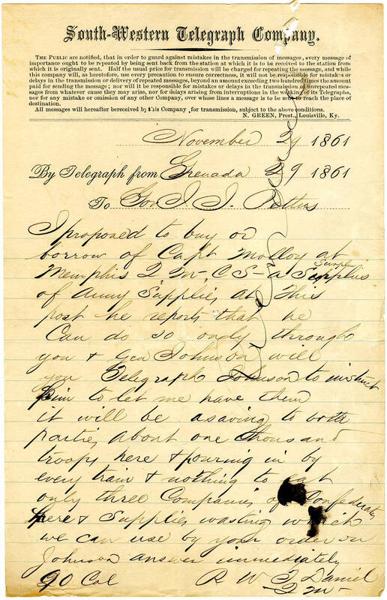 South-Western Telegraph Company.
THE PUBLIC are notified, that in order to guard against mistakes in the transmission of messages, every message of
importance ought to be repeated by being sent back from the station at which it is to be received to the station from
which it is originally sent. Half the usual price for transmission will be charged for repeating the message, and while
this company will, as heretofore, use every precaution to ensure correctness, it will not be responsible for mistakes or
delays in the transmission or delivery of repeated messages, beyond an amount exceeding two hundred times the amount
paid for sending the message; nor will it be responsible for mistakes or delays in the transmission of unrepeated messages
from whatever cause they may arise, nor for delays arising from interruptions in the working of its Telegraphs,
nor for any mistake or omission of any other Company, over whose lines a message is to be sent to reach the place of
destination.
All messages will hereafter be received by this Company for transmission, subject to the above conditions.
N. GREEN, Prest., Louisville, Ky.
November 29 1861
By Telegraph from Grenada 29 1861
To Gov J. J. Pettus
I proposed to buy or
borrow of Capt Molloy at
Memphis Q M C S a Surplus
of Army Supplies at This
post he reports that he
Can do so only through
you & Gen Johnson will
you Telegraph Johnson to instruct
him to let me have them
it will be a saving to both
parties about one thousand
troops here & pouring in by
every train & nothing to eat
only three Companies of Confederates
here & Supplies wasting which
we can use by your order on
Johnson answer immediately
90 Col R W T Daniel
Q M